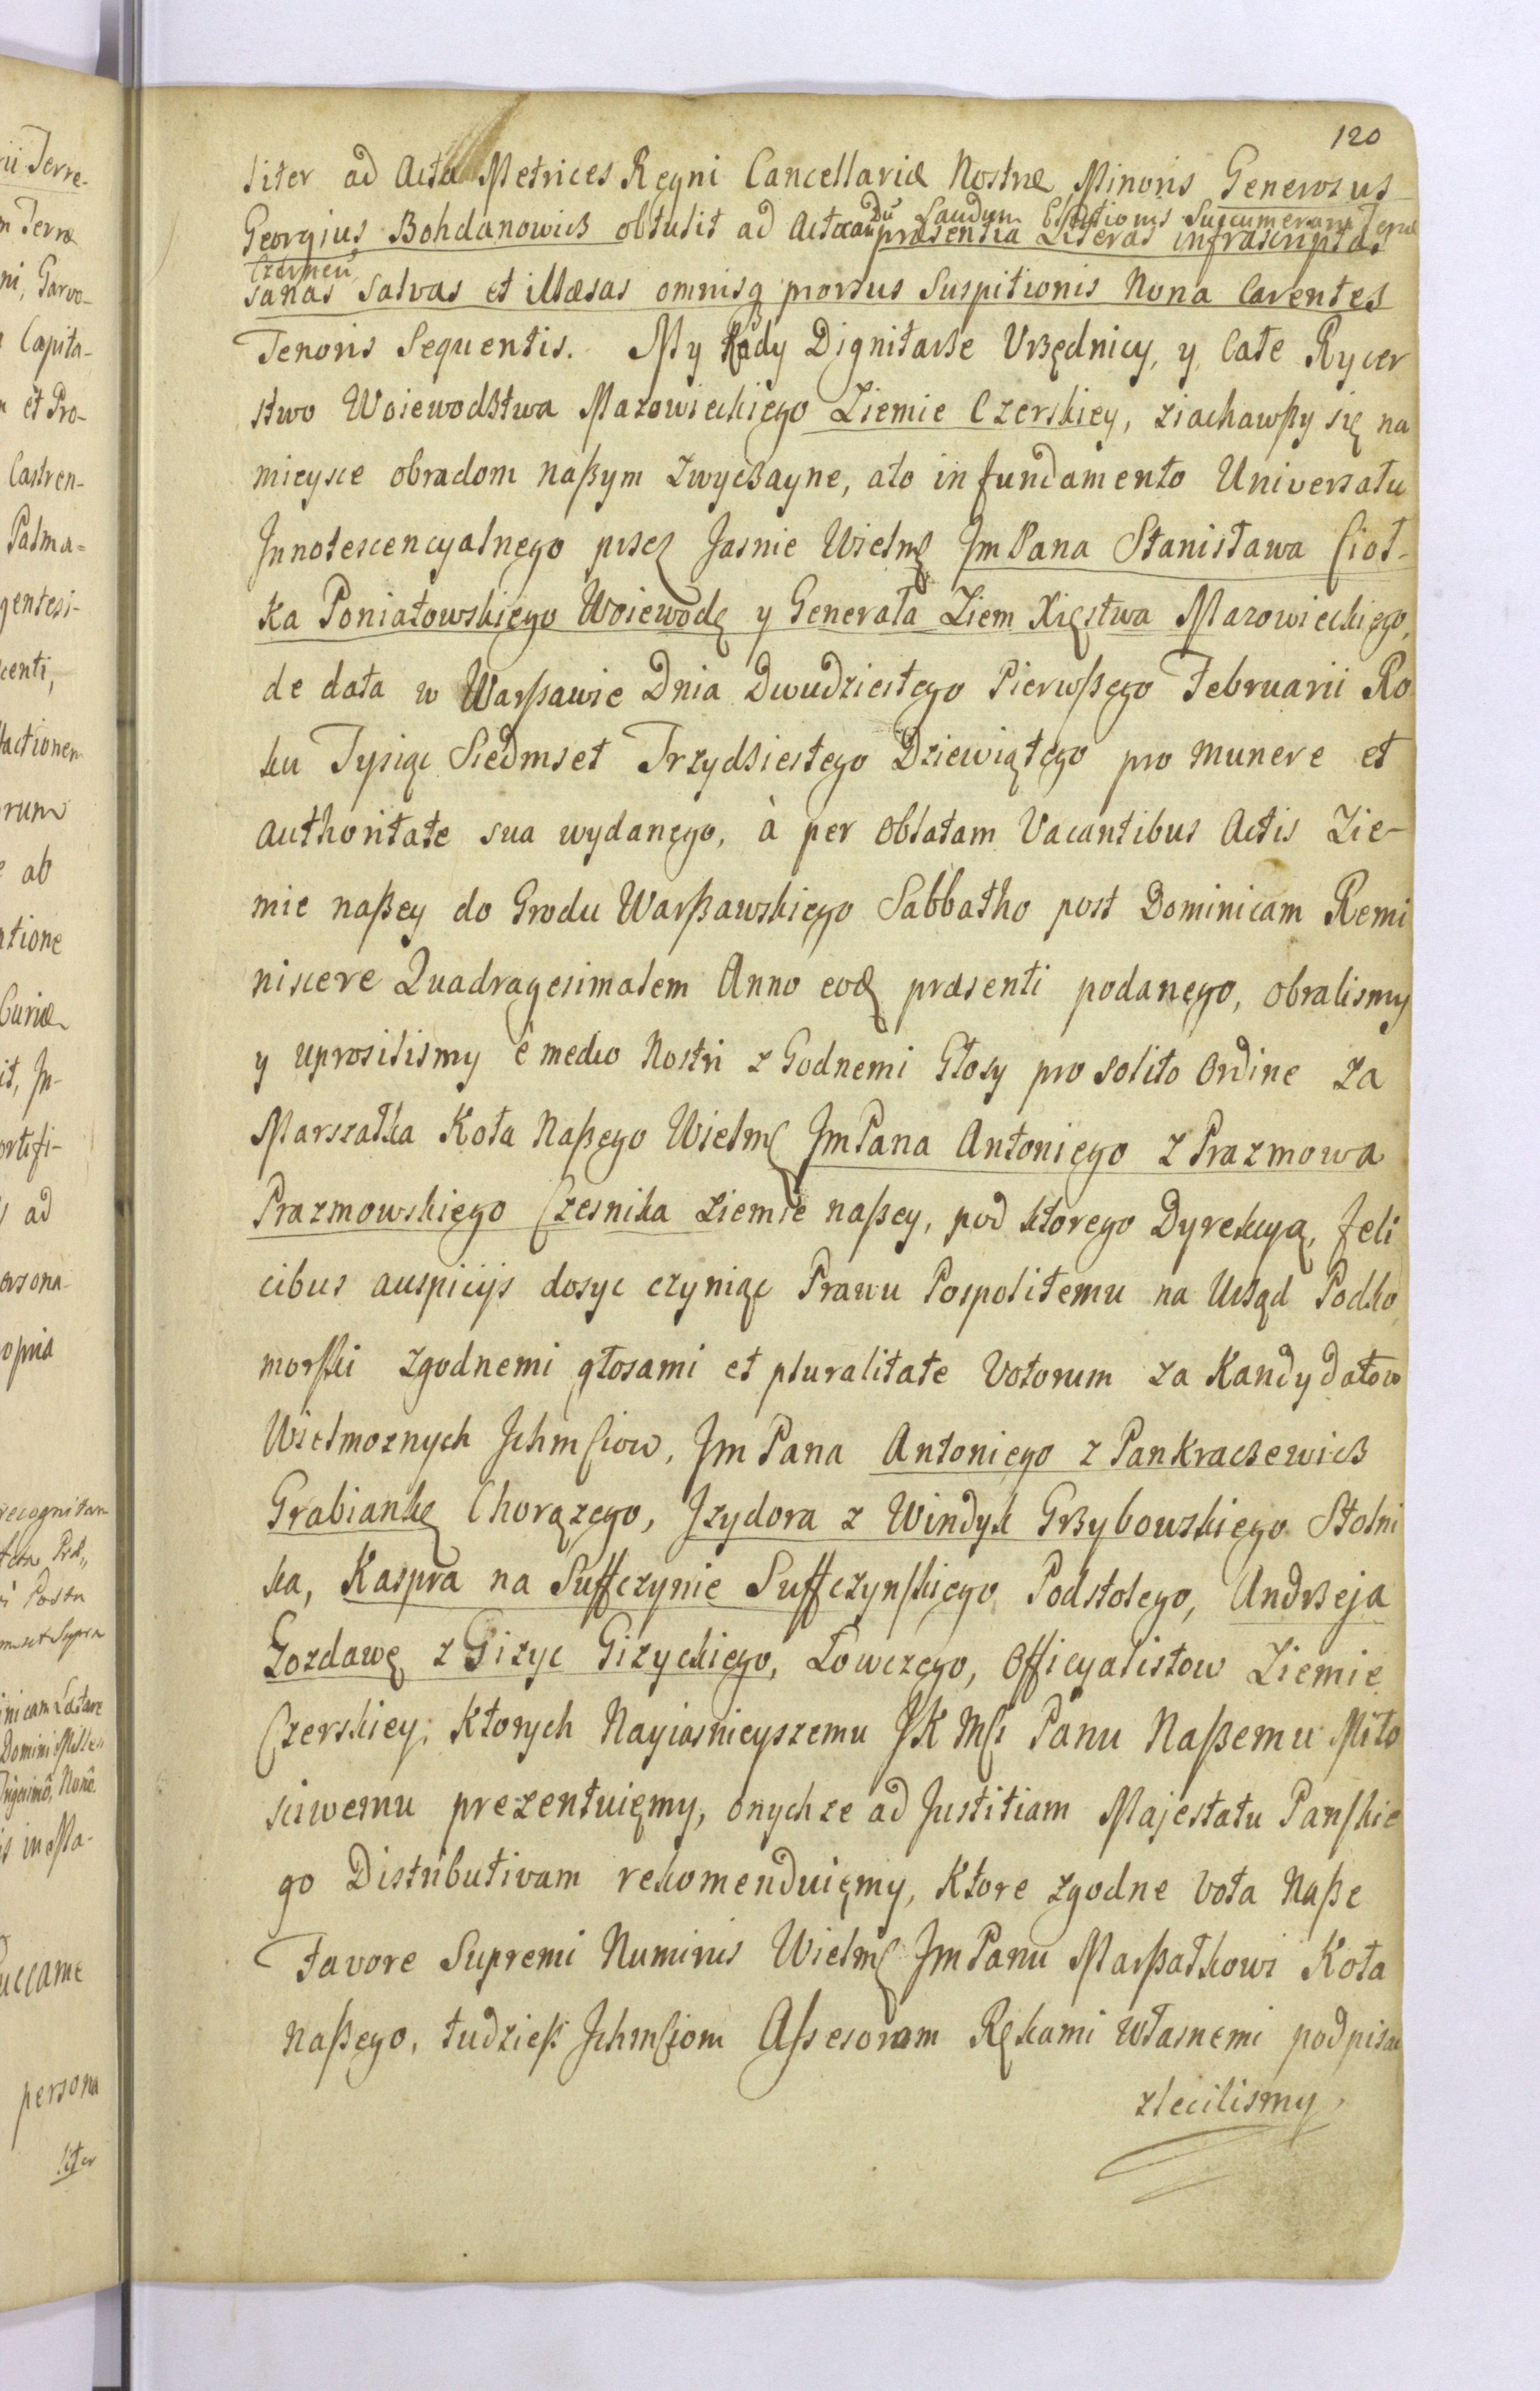 120
liter ad Acta Metrices Regni Cancellariæ Nostræ Minoris Generosus
Du Laudum Electionis Succamerarii Terræ
Georgius Bohdanowicz obtulit ad Acta præsentia Literas infrascriptas
Czernen
sanas salvas et illæsas omnisq prorsus Suspitionis Nona Carentes
Tenoris Sequentis. My Rady Dignitarze Urzędnicy, y Całe Rycer
stwo Woiewodztwa Mazowieckiego Ziemie Czerskiey, ziachawszy się na
mieysce obradom naszym zwyczayne, ato in fundamento Uniwersału
Jnnotescencyalnego przez Jasnie Wielmo Jm Pana Stanisława Cioł-
ka Poniatowskiego Woiewodę y Generała Ziem Xięstwa Mazowieckiego,
de data w Warszawie Dnia Dwudziestego Pierwszego Februarii Ro
ku Tysiąc Siedmset Trzydziestego Dziewiątego pro munere et
authoritate sua wydanego, à per oblatam Vacantibus Actis Zie-
mie naszey do Grodu Warszawskiego Sabbatho post Dominicam Remi
niscere Quadragesimalem Anno eoq præsenti podanego, obralismy
y uprosilismy è medio Nostri z Godnemi Głosy pro solito Ordine za
Marszałka Koła Naszego Wielmo Jm Pana Antoniego z Prazmowa
Prazmowskiego Czesnika Ziemie naszey, pod ktorego Dyrekcyą, feli
cibus auspicijs dosyc czyniąc Prawu Pospolitemu na Urząd Podko
morski zgodnemi głosami et pluralitate Votorum za Kandydatow
Wielmoznych Jchmsciow, Jm Pana Antoniego z Pankraczewicz
Grabiankę Chorązego, Jzydora z Windyk Grzybowskiego Stolni
ka, Kaspra na Suffczynie Suffczynskiego Podstolego, Andrzeja
Gozdawę z Gizyc Gizyckiego, Łowczego, Officyalistow Ziemie
Czerskiey; Ktorych Nayiasnieyszemu JK Msci Panu Naszemu Miło
sciwemu prezentuięmy, onychze ad Justitiam Majestatu Panskie
go Distributivam rekomenduięmy, Ktore zgodne Vota Nasze
Favore Supremi Numinis Wielmo Jm Panu Marszałkowi Koła
Naszego, tudziesz Jchmsciom Assesorom Rękami własnemi podpisac
zlecilismy.